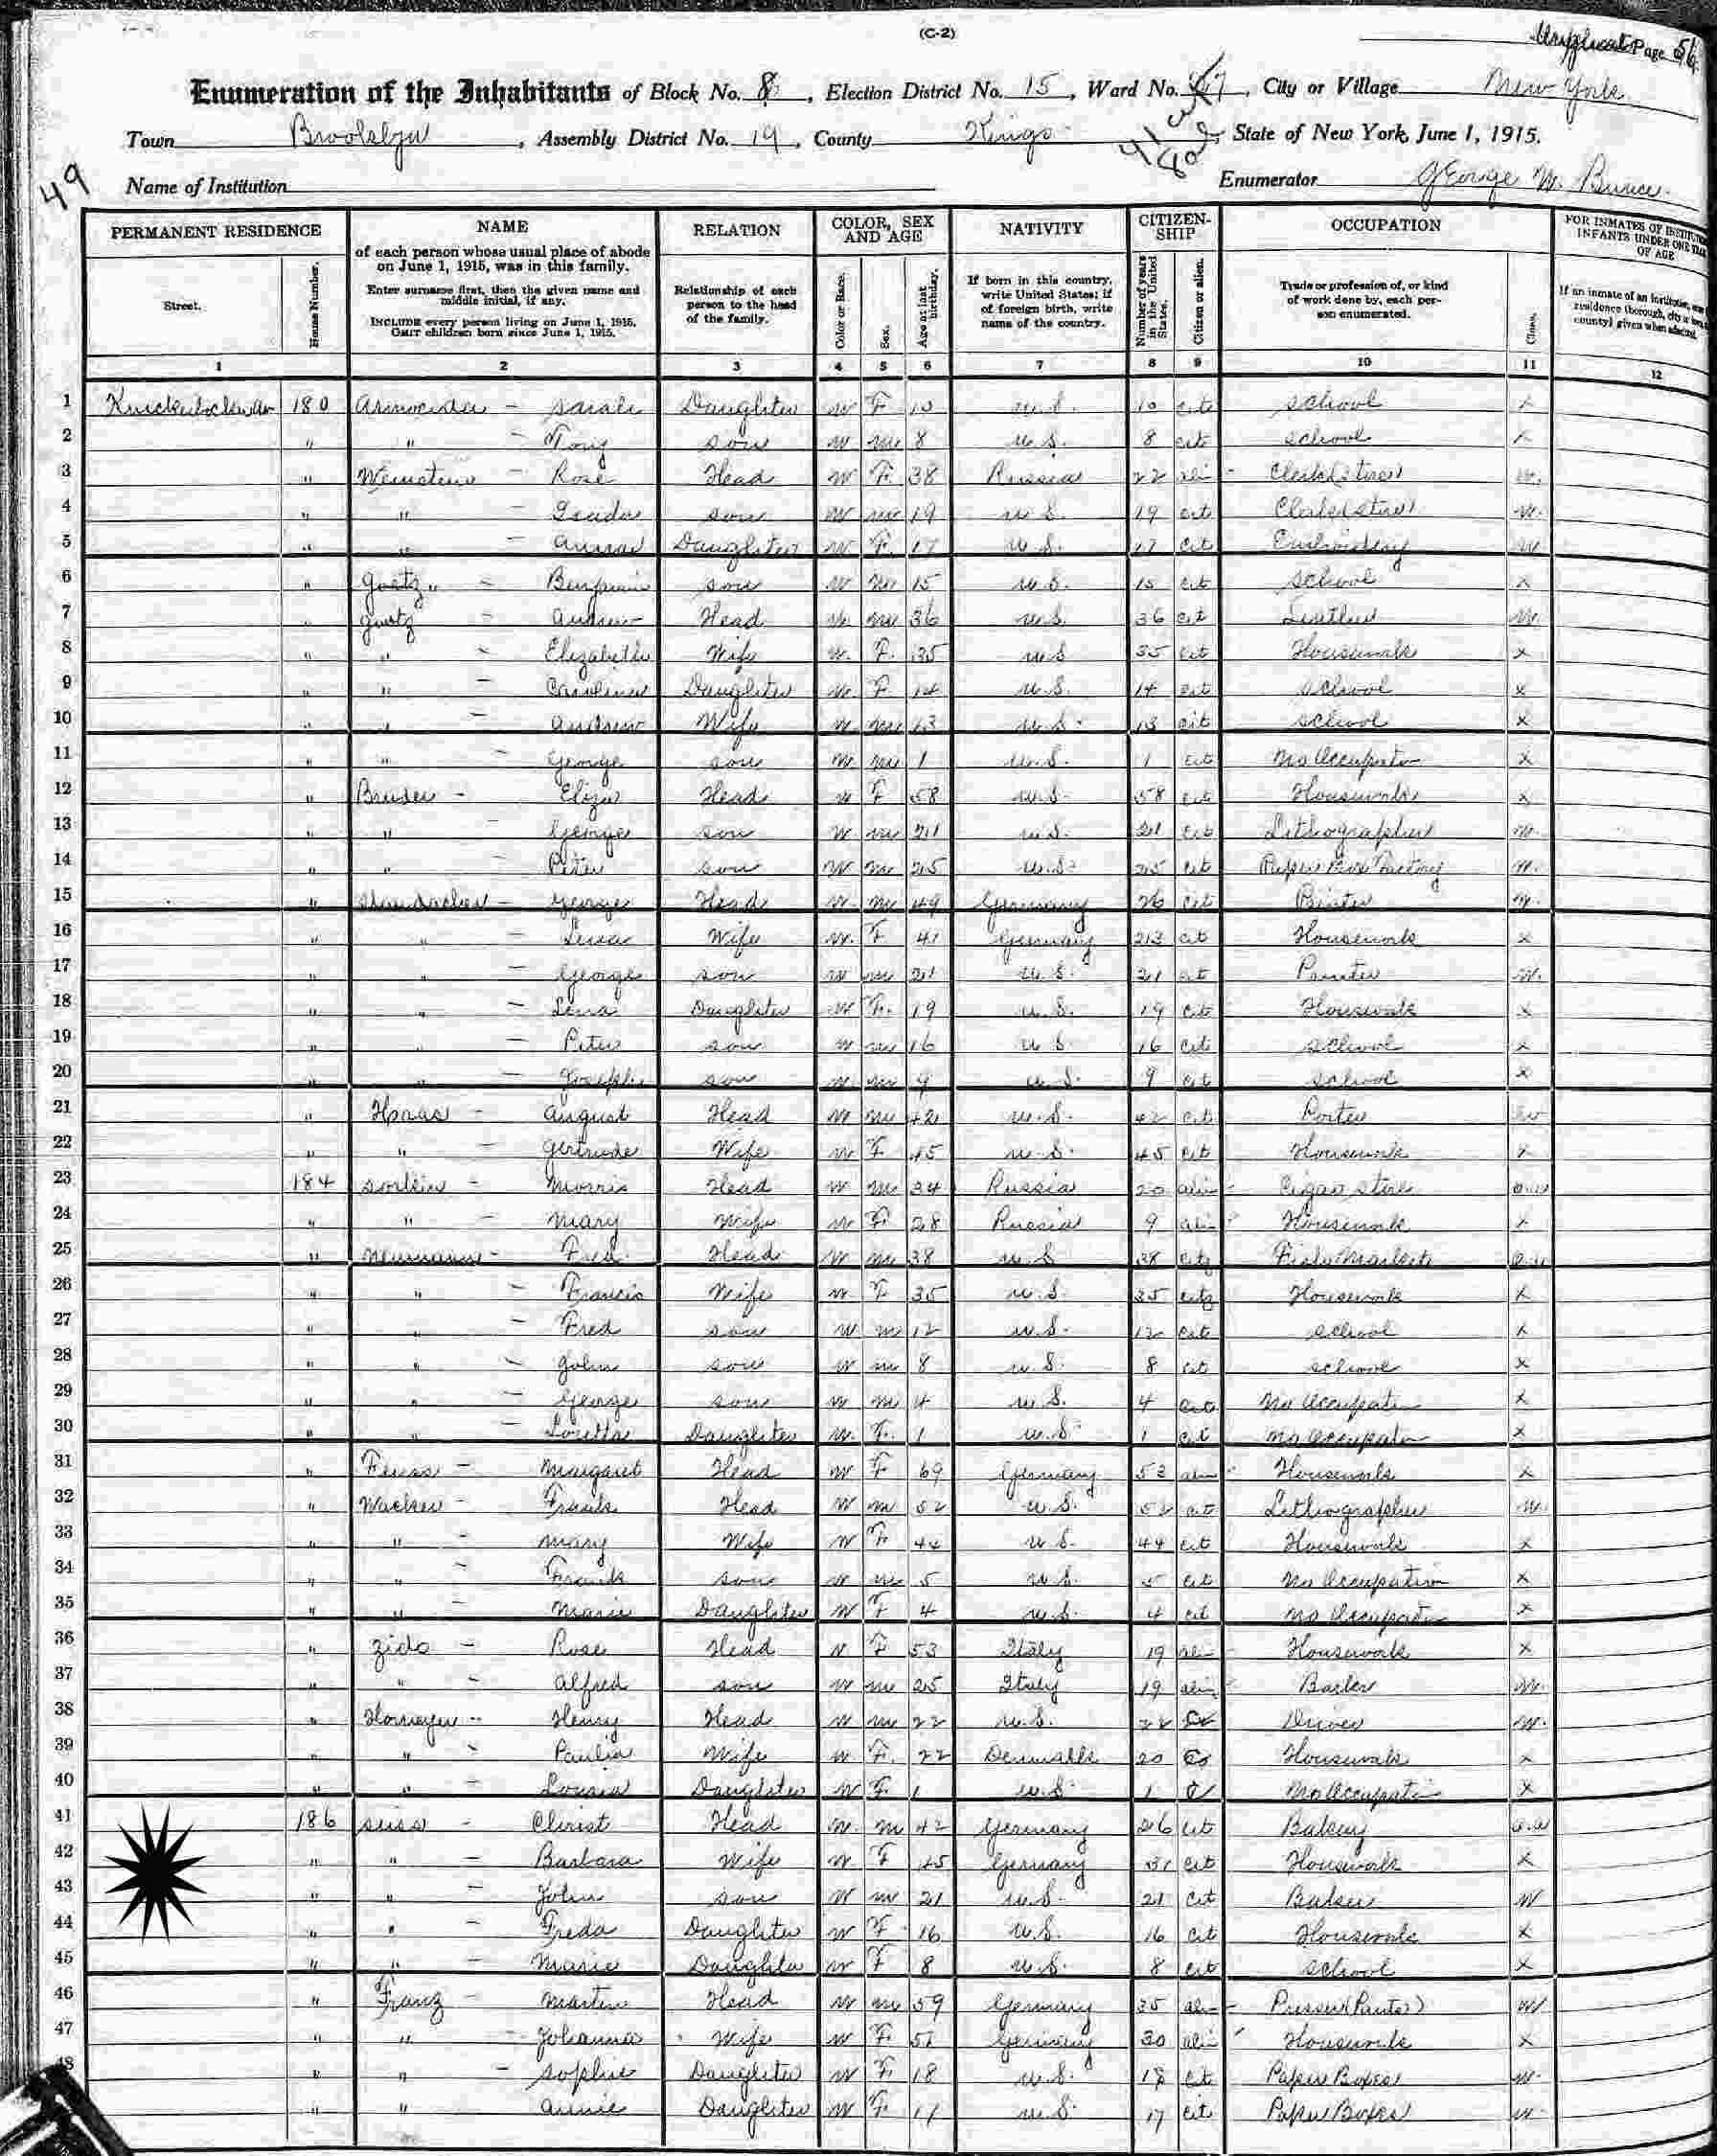 (C-2)
Page 56
Enumeration of the Inhabitants of Block No. 8, Election District No. 15, Ward No. 27, City or Village New York
Town Brooklyn, Assembly District No. 19, County Kings, State of New York, June 1, 1915.
49
Name of Institution Enumerator George W. Bunce
PERMANENT RESIDENCE NAME RELATION COLOR, SEX AND AGE NATIVITY CITIZENSHIP OCCUPATION FOR INMATES OF
INFANTS UNDER ONE YEAR OF AGE
of each person whose usual place of abode on June 1, 1915, was in this family.
Enter surname first, then the given name and middle initial, if any.
INCLUDE every person living on June 1, 1915. OMIT children born since June 1, 1915.
Street. House Number.
Relationship of each person to the head of the family.
Color or Race. Sex. Age at last birthday.
If born in this country, write United States; if of foreign birth, write name of the country.
Number of years in the United States. Citizen or alien.
Trade or profession of, or kind of work done by, each person enumerated.
Class.
1 2 3 4 5 6 7 8 9 10 11 12
1 180 Sarah Daughter W F 10 U.S. 10 cit School X
2 " " - Tony son W m 8 U.S. 8 cit school X
3 " - Rose Head W F 38 Russia 22 alien Clerk (store) W
4 " " - son W m 19 U.S. 19 cit Clerk (store) W
5 " " - Anna Daughter W F 17 U.S. 17 cit Embroidery W
6 " Goetz - Benjamin son W m 15 U.S. 15 cit School X
7 " Goetz - Andrew Head W m 36 U.S. 36 cit W
8 " " - Elizabeth Wife W F 35 U.S. 35 cit Housework X
9 " " - Caroline Daughter W F 14 U.S. 14 cit School X
10 " " - Andrew Wife W m 13 U.S. 13 cit School X
11 " " - George son W m 1 U.S. 1 cit No Occupation X
12 " - Eliza Head W F 58 U.S. 58 cit Housework X
13 " " - George son W m 21 U.S. 21 cit Lithographer W
14 " " - Peter son W m 25 U.S. 25 cit Paper Box Factory W
15 " - George Head W m 49 Germany 26 cit W
16 " " - Lena Wife W F 41 Germany 23 cit Housework X
17 " " - George son W m 21 U.S. 21 cit W
18 " " - Lena Daughter W F 19 U.S. 19 cit Housework X
19 " " - Peter son W m 16 U.S. 16 cit School X
20 " " - Joseph son W m 9 U.S. 9 cit School X
21 " Haas - August Head W m 42 U.S. 42 cit Porter W
22 " " - Gertrude Wife W F 45 U.S. 45 cit Housework X
23 184 - Morris Head W m 34 Russia 20 alien Cigar Store
24 " " - Mary Wife W F 28 Russia 9 alien Housework X
25 " Neumann - Fred Head W m 38 U.S. 38 cit Fish Market
26 " " - Francis Wife W F 35 U.S. 35 cit Housework X
27 " " - Fred son W m 12 U.S. 12 cit School X
28 " " - John son W m 8 U.S. 8 cit School X
29 " " - George son W m 4 U.S. 4 cit No Occupation X
30 " " - Loretta Daughter W F 1 U.S. 1 cit No Occupation X
31 " - Margaret Head W F 69 Germany 53 alien Housework X
32 " - Frank Head W m 52 U.S. 52 cit Lithographer W
33 " " - Mary Wife W F 44 U.S. 44 cit Housework X
34 " " - Frank son W m 5 U.S. 5 cit No Occupation X
35 " " - Marie Daughter W F 4 U.S. 4 cit No Occupation X
36 " Zido - Rose Head W F 53 Italy 19 alien Housework X
37 " " - Alfred son W m 25 Italy 19 alien Barber W
38 " - Henry Head W m 22 U.S. 22 Driver W
39 " " - Wife W F 22 Denmark 20 Housework X
40 " " - Daughter W F 1 U.S. 1 No Occupation X
41 186 Suiss - Christ Head W m 42 Germany 26 cit Bakery
42 " " - Barbara Wife W F 45 Germany 31 cit Housework X
43 " " - John son W m 21 U.S. 21 cit Baker W
44 " " - Freda Daughter W F 16 U.S. 16 cit Housework X
45 " " - Marie Daughter W F 8 U.S. 8 cit School X
46 " Franz - Martin Head W m 59 Germany 35 alien Presser (Pants) W
47 " " - Johanna Wife W F 51 Germany 30 alien Housework X
48 " " - Sophie Daughter W F 18 U.S. 18 cit Paper Boxes W
" " Annie Daughter W F 17 U.S. 17 cit Paper Boxes W